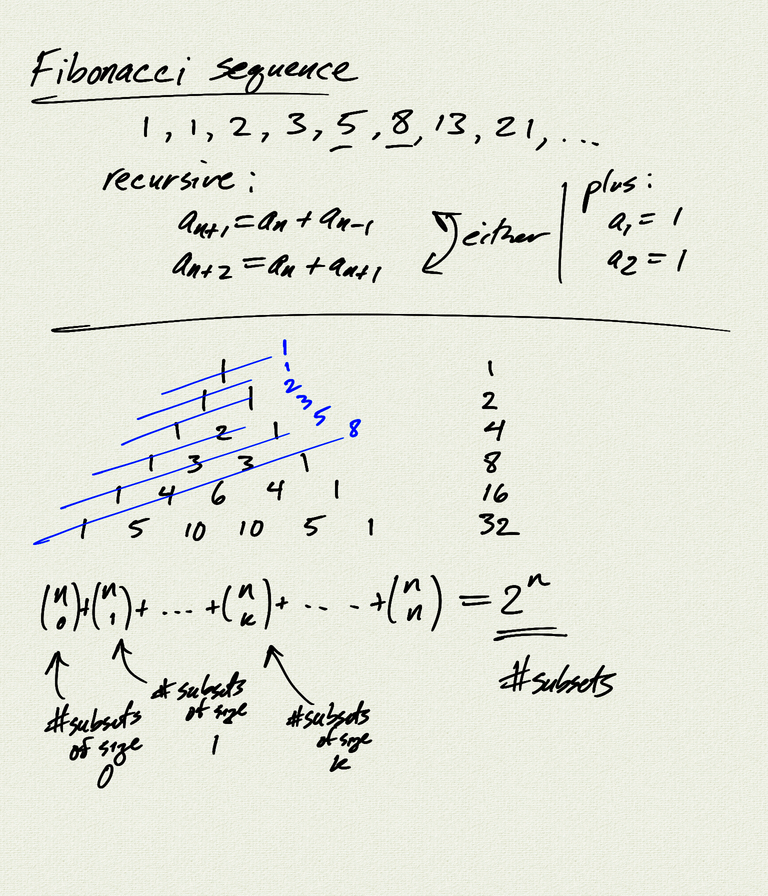 Fibonacci sequence
1, 1, 2, 3, 5, 8, 13, 21, ...
recursive:
aₙ₊₁ = aₙ + aₙ₋₁
aₙ₊₂ = aₙ + aₙ₊₁
either
plus:
a₁ = 1
a₂ = 1
1
1
2
3
5
8
1 1
1 1 2
1 2 1 4
1 3 3 1 8
1 4 6 4 1 16
1 5 10 10 5 1 32
(n 0) + (n 1) + ... + (n k) + ... + (n n) = 2ⁿ
#subsets
#subsets
of size
0
#subsets
of size
1
#subsets
of size
k